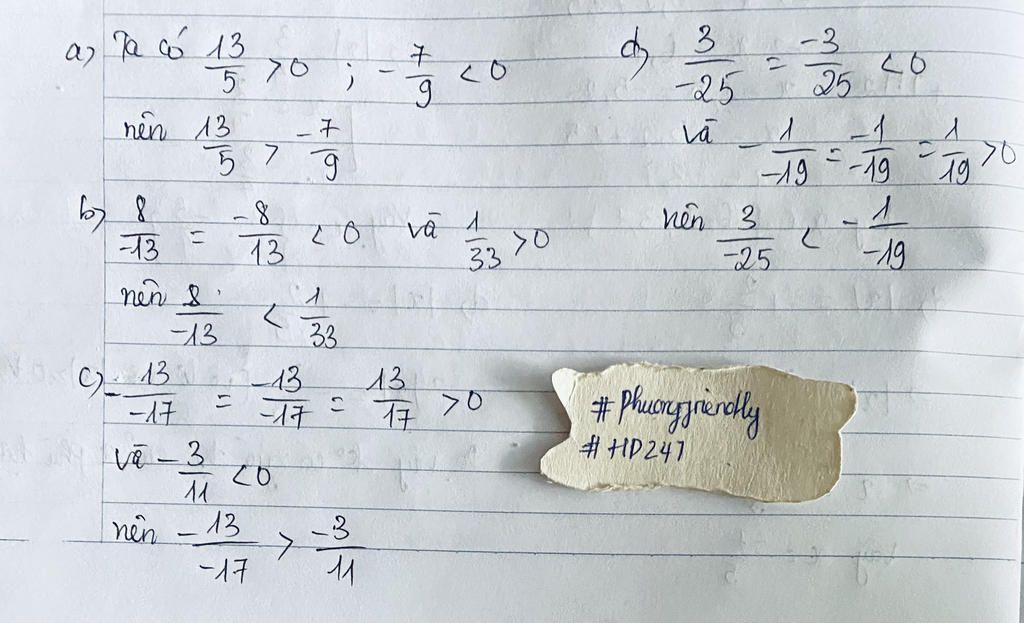 a) Ta có 13/5 > 0 ; -7/9 < 0
nên 13/5 > -7/9
b) 8/-13 = -8/13 < 0 và 1/33 > 0
nên 8/-13 < 1/33
c) -13/-17 = -13/-17 = 13/17 > 0
và -3/11 < 0
nên -13/-17 > -3/11
d) 3/-25 = -3/25 < 0
và -1/-19 = -1/-19 = 1/19 > 0
nên 3/-25 < -1/-19
#Phuongfriendly
#HD247